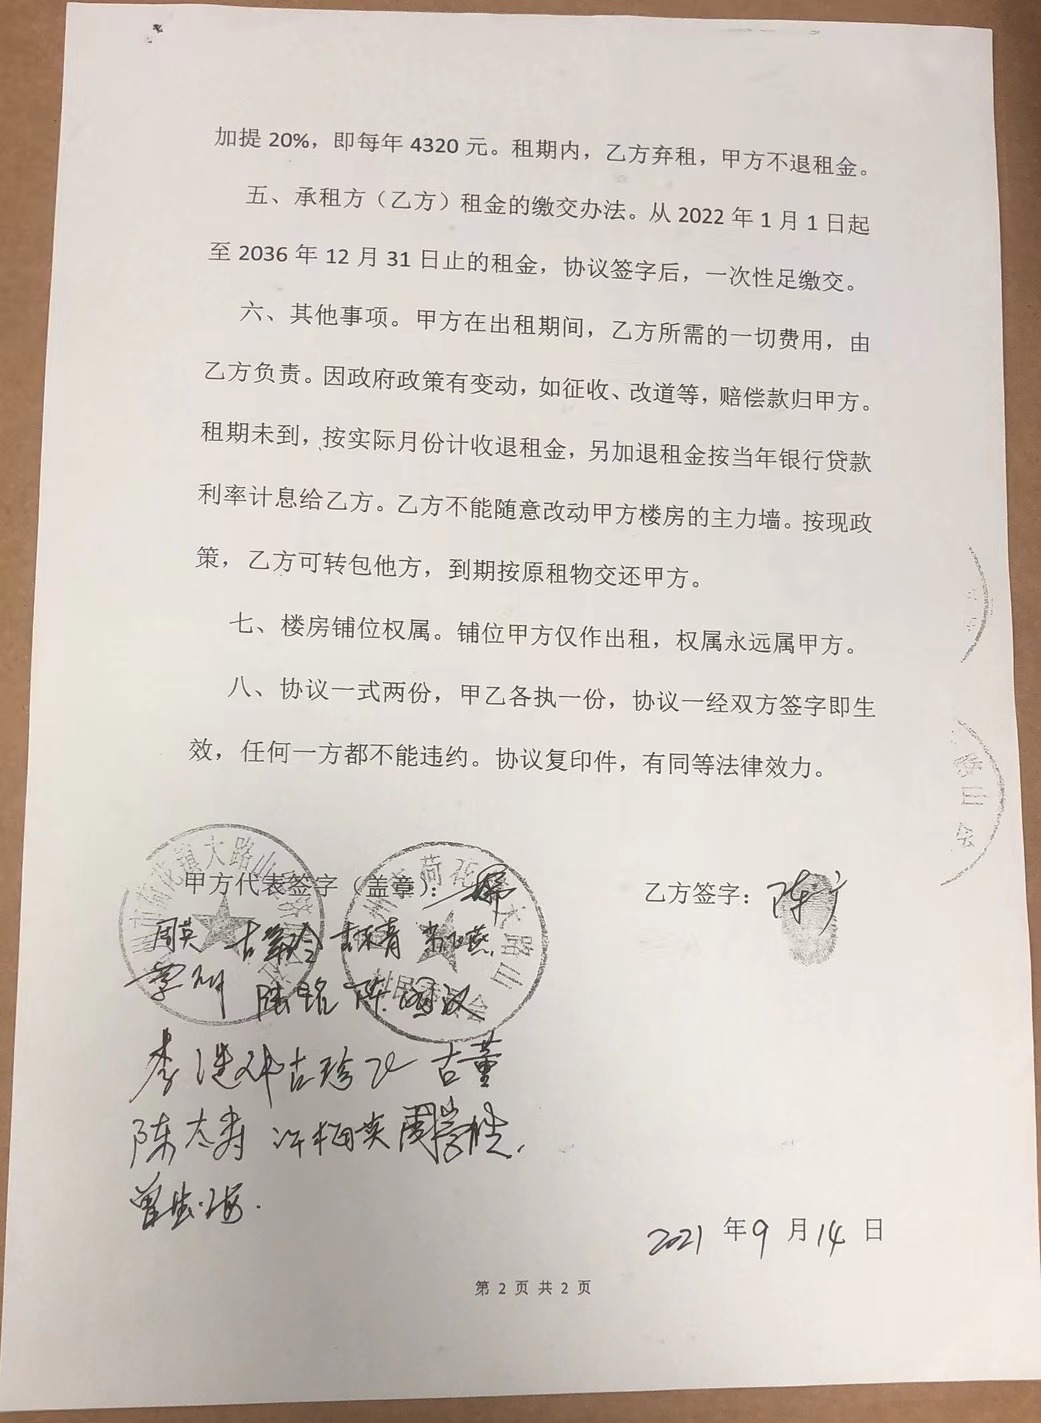 加提 20%，即每年 4320 元。租期内，乙方弃租，甲方不退租金。
五、承租方（乙方）租金的缴交办法。从 2022 年 1 月 1 日起
至 2036 年 12 月 31 日止的租金，协议签字后，一次性足缴交。
六、其他事项。甲方在出租期间，乙方所需的一切费用，由
乙方负责。因政府政策有变动，如征收、改道等，赔偿款归甲方。
租期未到，按实际月份计收退租金，另加退租金按当年银行贷款
利率计息给乙方。乙方不能随意改动甲方楼房的主力墙。按现政
策，乙方可转包他方，到期按原租物交还甲方。
七、楼房铺位权属。铺位甲方仅作出租，权属永远属甲方。
八、协议一式两份，甲乙各执一份，协议一经双方签字即生
效，任何一方都不能违约。协议复印件，有同等法律效力。
甲方代表签字（盖章）：
乙方签字：陈
荷花镇大路山
荷花 大路山
村民 会
路山 会
周英
陈
李 古珍 古董
陈 许梅英 周
曾
2021 年 9 月 14 日
第 2 页 共 2 页